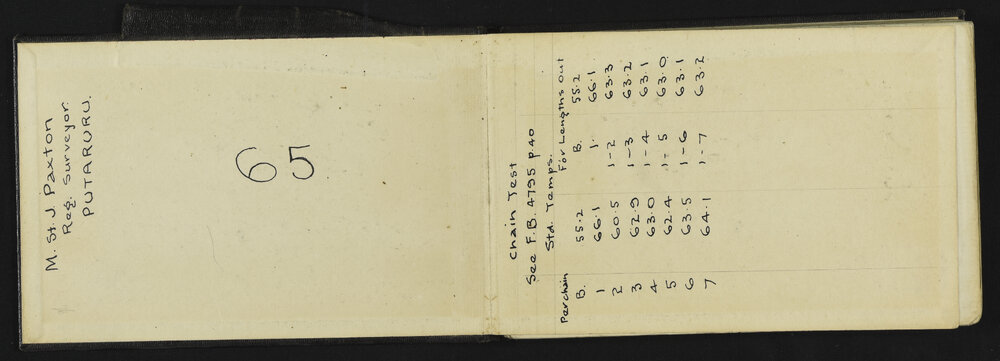 M. St. J. Paxton
Reg. Surveyor.
PUTARURU.
65
Chain Test
See F.B. 4795 p40
Std. Temps.
Per chain For Lengths Out
B. 55.2 B. 55.2
1 66.1 1. 66.1
2 60.5 1-2 63.3
3 62.9 1-3 63.2
4 63.0 1-4 63.1
5 62.4 1-5 63.0
6 63.5 1-6 63.1
7 64.1 1-7 63.2